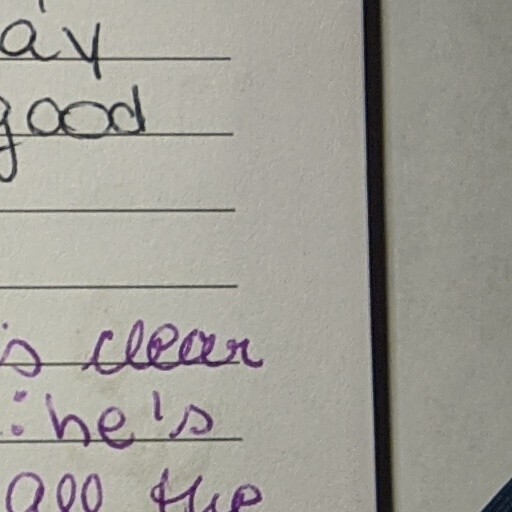 ay
good
s clear
: he's
all the